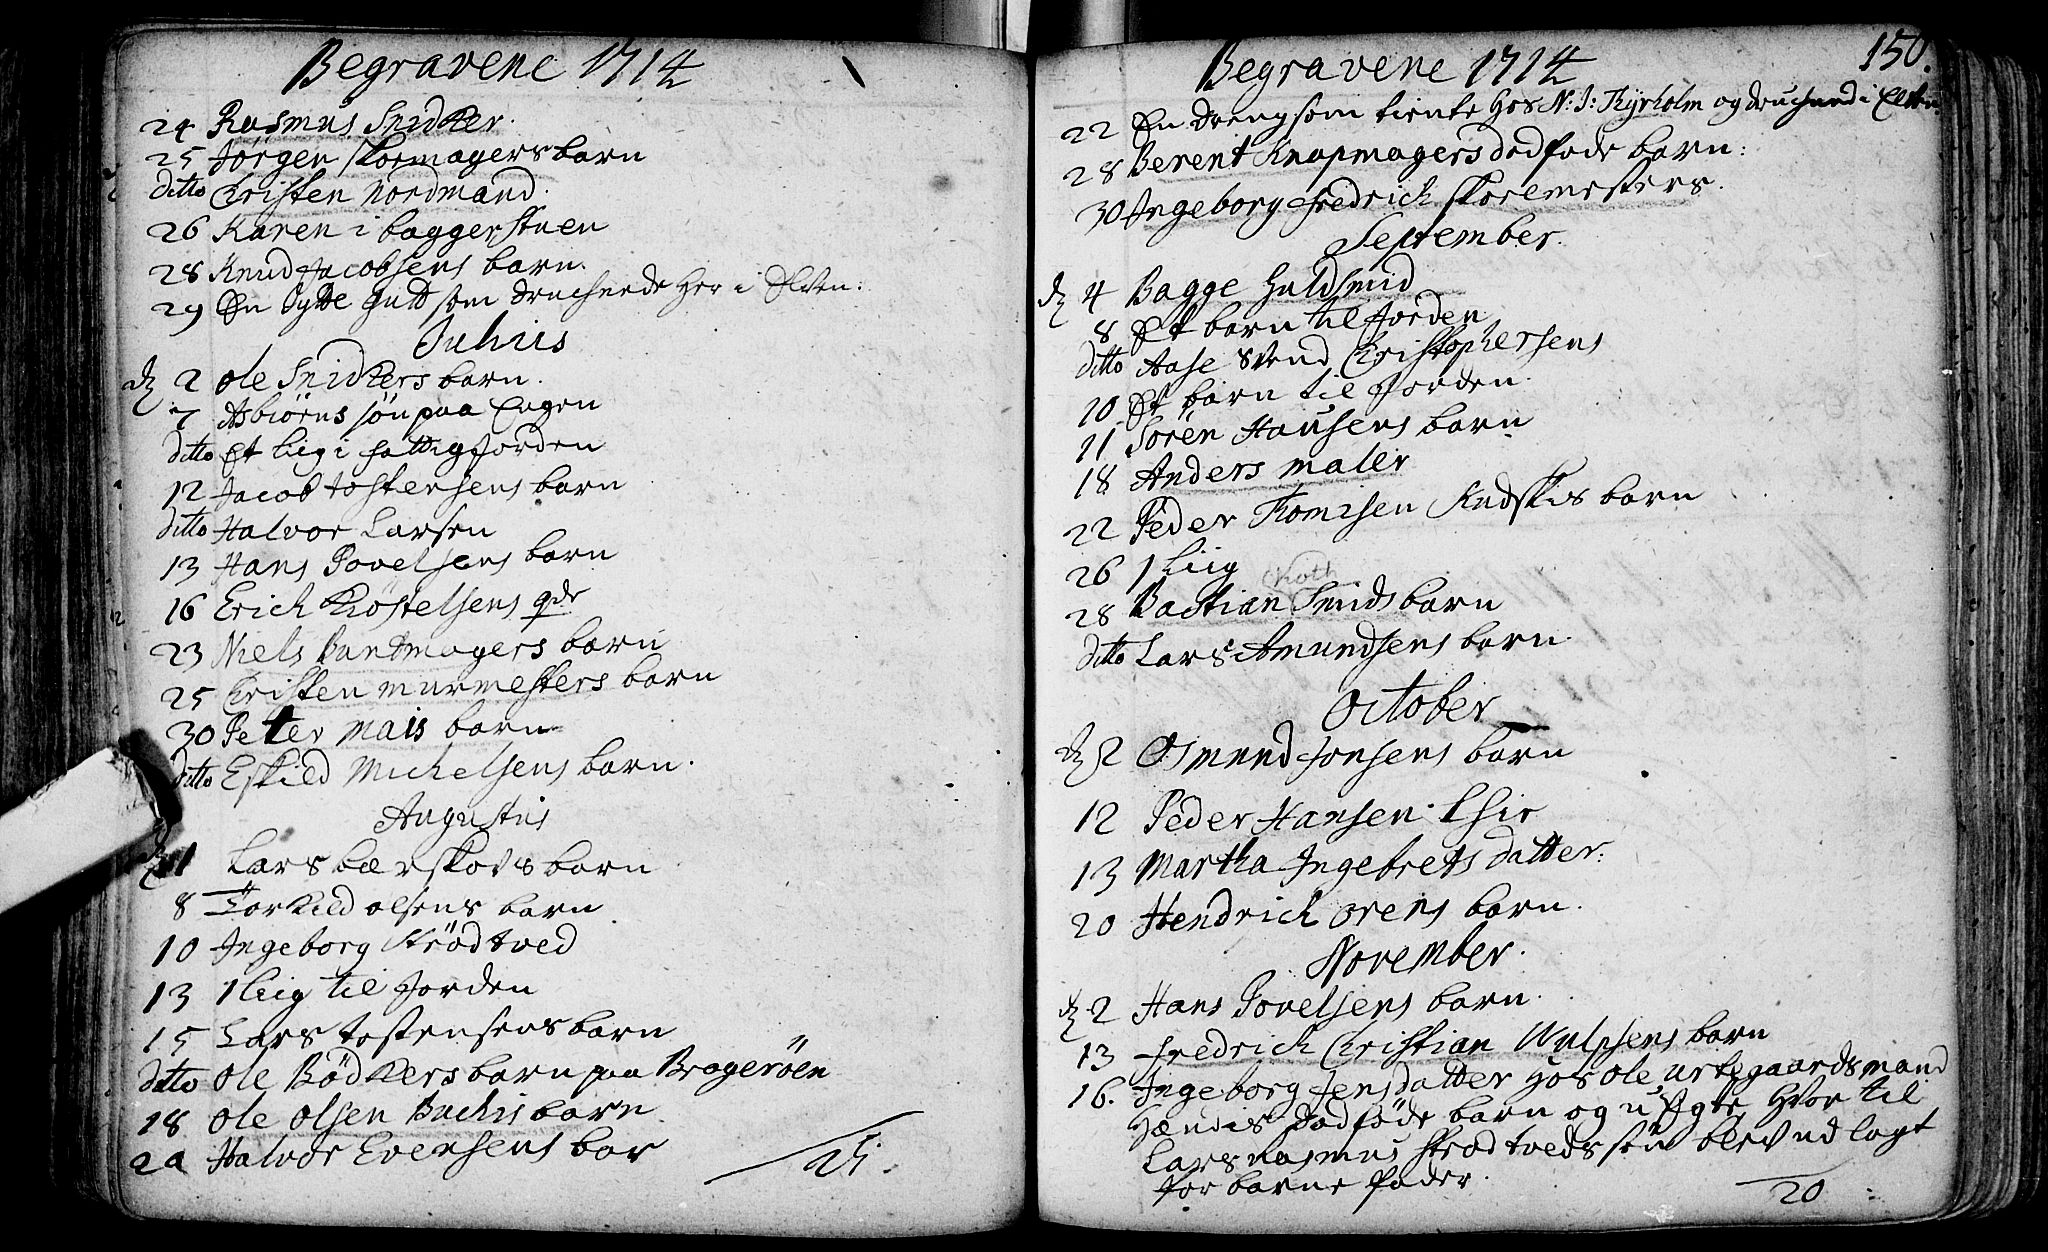 Begravene 1714
24 Rasmus Snidker.
25 Jørgen skormagers barn
ditto Christen Nordmand.
26 Karen i baggerstuen
28 Knud Jacobsens barn.
29 En Gutt som druchnede her i Elven:
Julius
2 Ole Snidkers barn.
7 Asbiørns søn paa Engen
ditto Et liig i fattig Jorden
12 Jacob tostensens barn
ditto Halvor Larsen
13 Hans Povelsens barn
16 Erich
23 Niels Buntmagers barn
25 Christen murmesters barn
30 Peter Mais barn
ditto Eskild Michelsens barn.
Augustus
1 Lars bærskots barn
8 Torkild olsens barn
10 Ingeborg Strødtved
13 1 liig til Jorden
15 Lars tostensens barn
ditto Ole Bødkers barn paa Bragerøen
18 Ole Olsen Buchis barn
Halvor Evensens bar
21.
Begravene 1714 150.
22 En dreng som tiente hos N: J: Thyrholm og druchned i Elven.
28 Berent Knapmagers dødføde barn:
30 Ingeborg Fredrich skoremesters.
September.
4 Bagge Guldsmid
8 Et barn til Jorden
ditto Aase Svend Christophersens
10 Et barn til Jorden.
11 Søren Hansens barn
18 Anders maler
22 Peder Thomisen barn
26 1 Liig
Koth
28 Bastian Smids barn
ditto Lars Amundsens barn.
October
2 Osmund Jonsens barn
12 Peder Hansen
13 Martha Ingebrets datter:
20 Hendrich orens barn.
November.
2 Hans Povelsens barn.
13 Fredrich Christian Wulpsens barn
16. Ingeborg Jensdatter hos Ole urtegaardsmand
Hændis Dødføde barn og u Egte, Hvor til
Lars rasmus Strødtveds søn blev ud lagt
for barne fader.
20